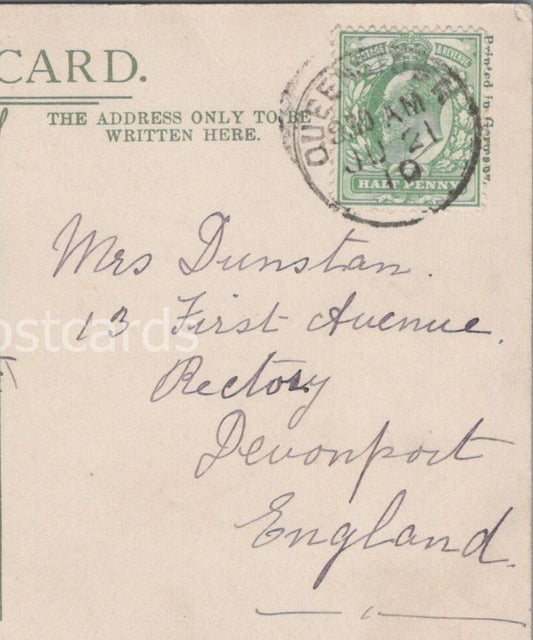 CARD.
THE ADDRESS ONLY TO BE
WRITTEN HERE.
POSTAGE & REVENUE
HALF PENNY
Printed in Germany.
AM
JU 21
10
Mrs Dunstan.
13 First Avenue.
Rectory
Devonport
England.
ostcards